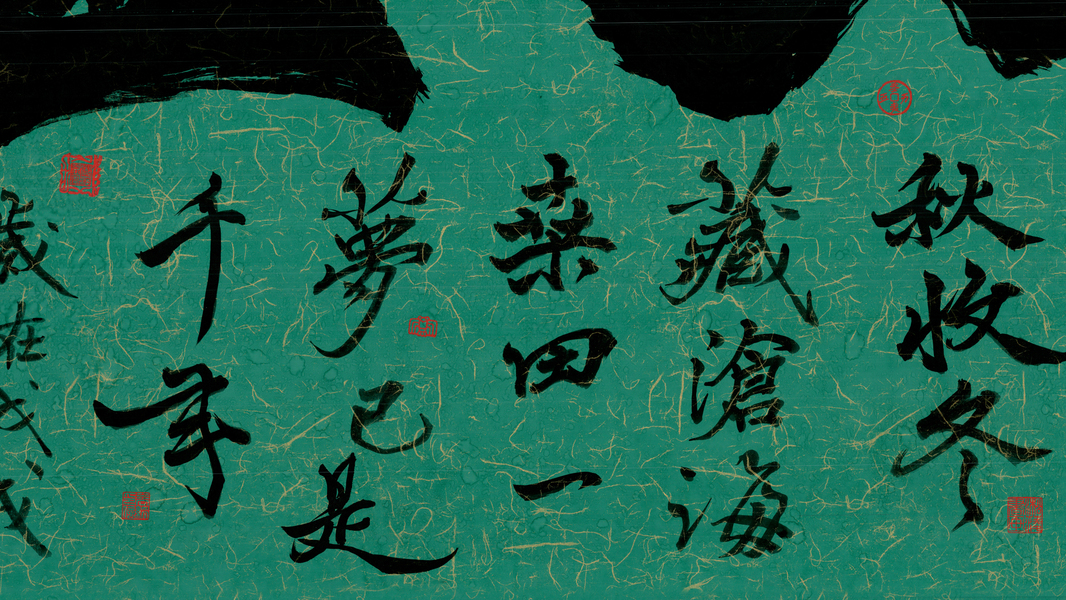 秋收冬
藏滄海
桒田一
夢已是
千年